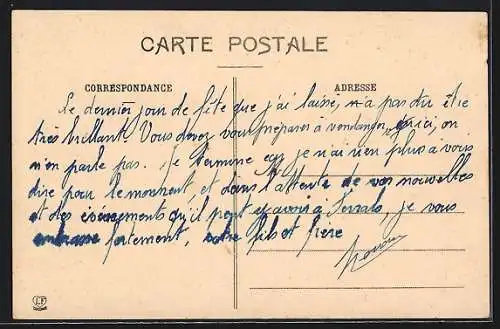 CARTE POSTALE
CORRESPONDANCE
ADRESSE
Le dernier jour de fête que j'ai laissé, n'a pas du être
très brillant. Vous devez vous préparer à vendanger, qu'ici, on
n'en parle pas. Je termine car je n'ai rien plus à vous
dire pour le moment, et dans l'attente de vos nouvelles
et des évènements qu'il peut y avoir à Ferrals, je vous
embrasse fortement, votre fils et frère
LF